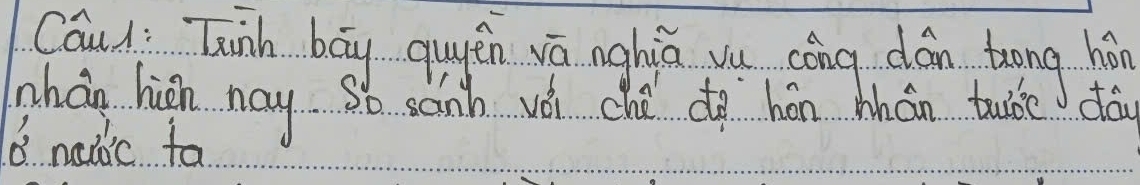 Câu 1: Trình bày quyền và nghĩa vụ công dân trong hôn
nhân hiện nay. So sánh với chế độ hôn nhân trước đây
ở nước ta